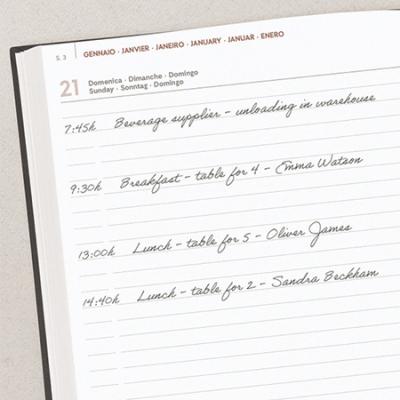 S. 3 GENNAIO · JANVIER · JANEIRO · JANUARY · JANUAR · ENERO
21 Domenica · Dimanche · Domingo
Sunday · Sonntag · Domingo
7:45h Beverage supplier - unloading in warehouse
9:30h Breakfast - table for 4 - Emma Watson
13:00h Lunch - table for 5 - Oliver James
14:40h Lunch - table for 2 - Sandra Beckham